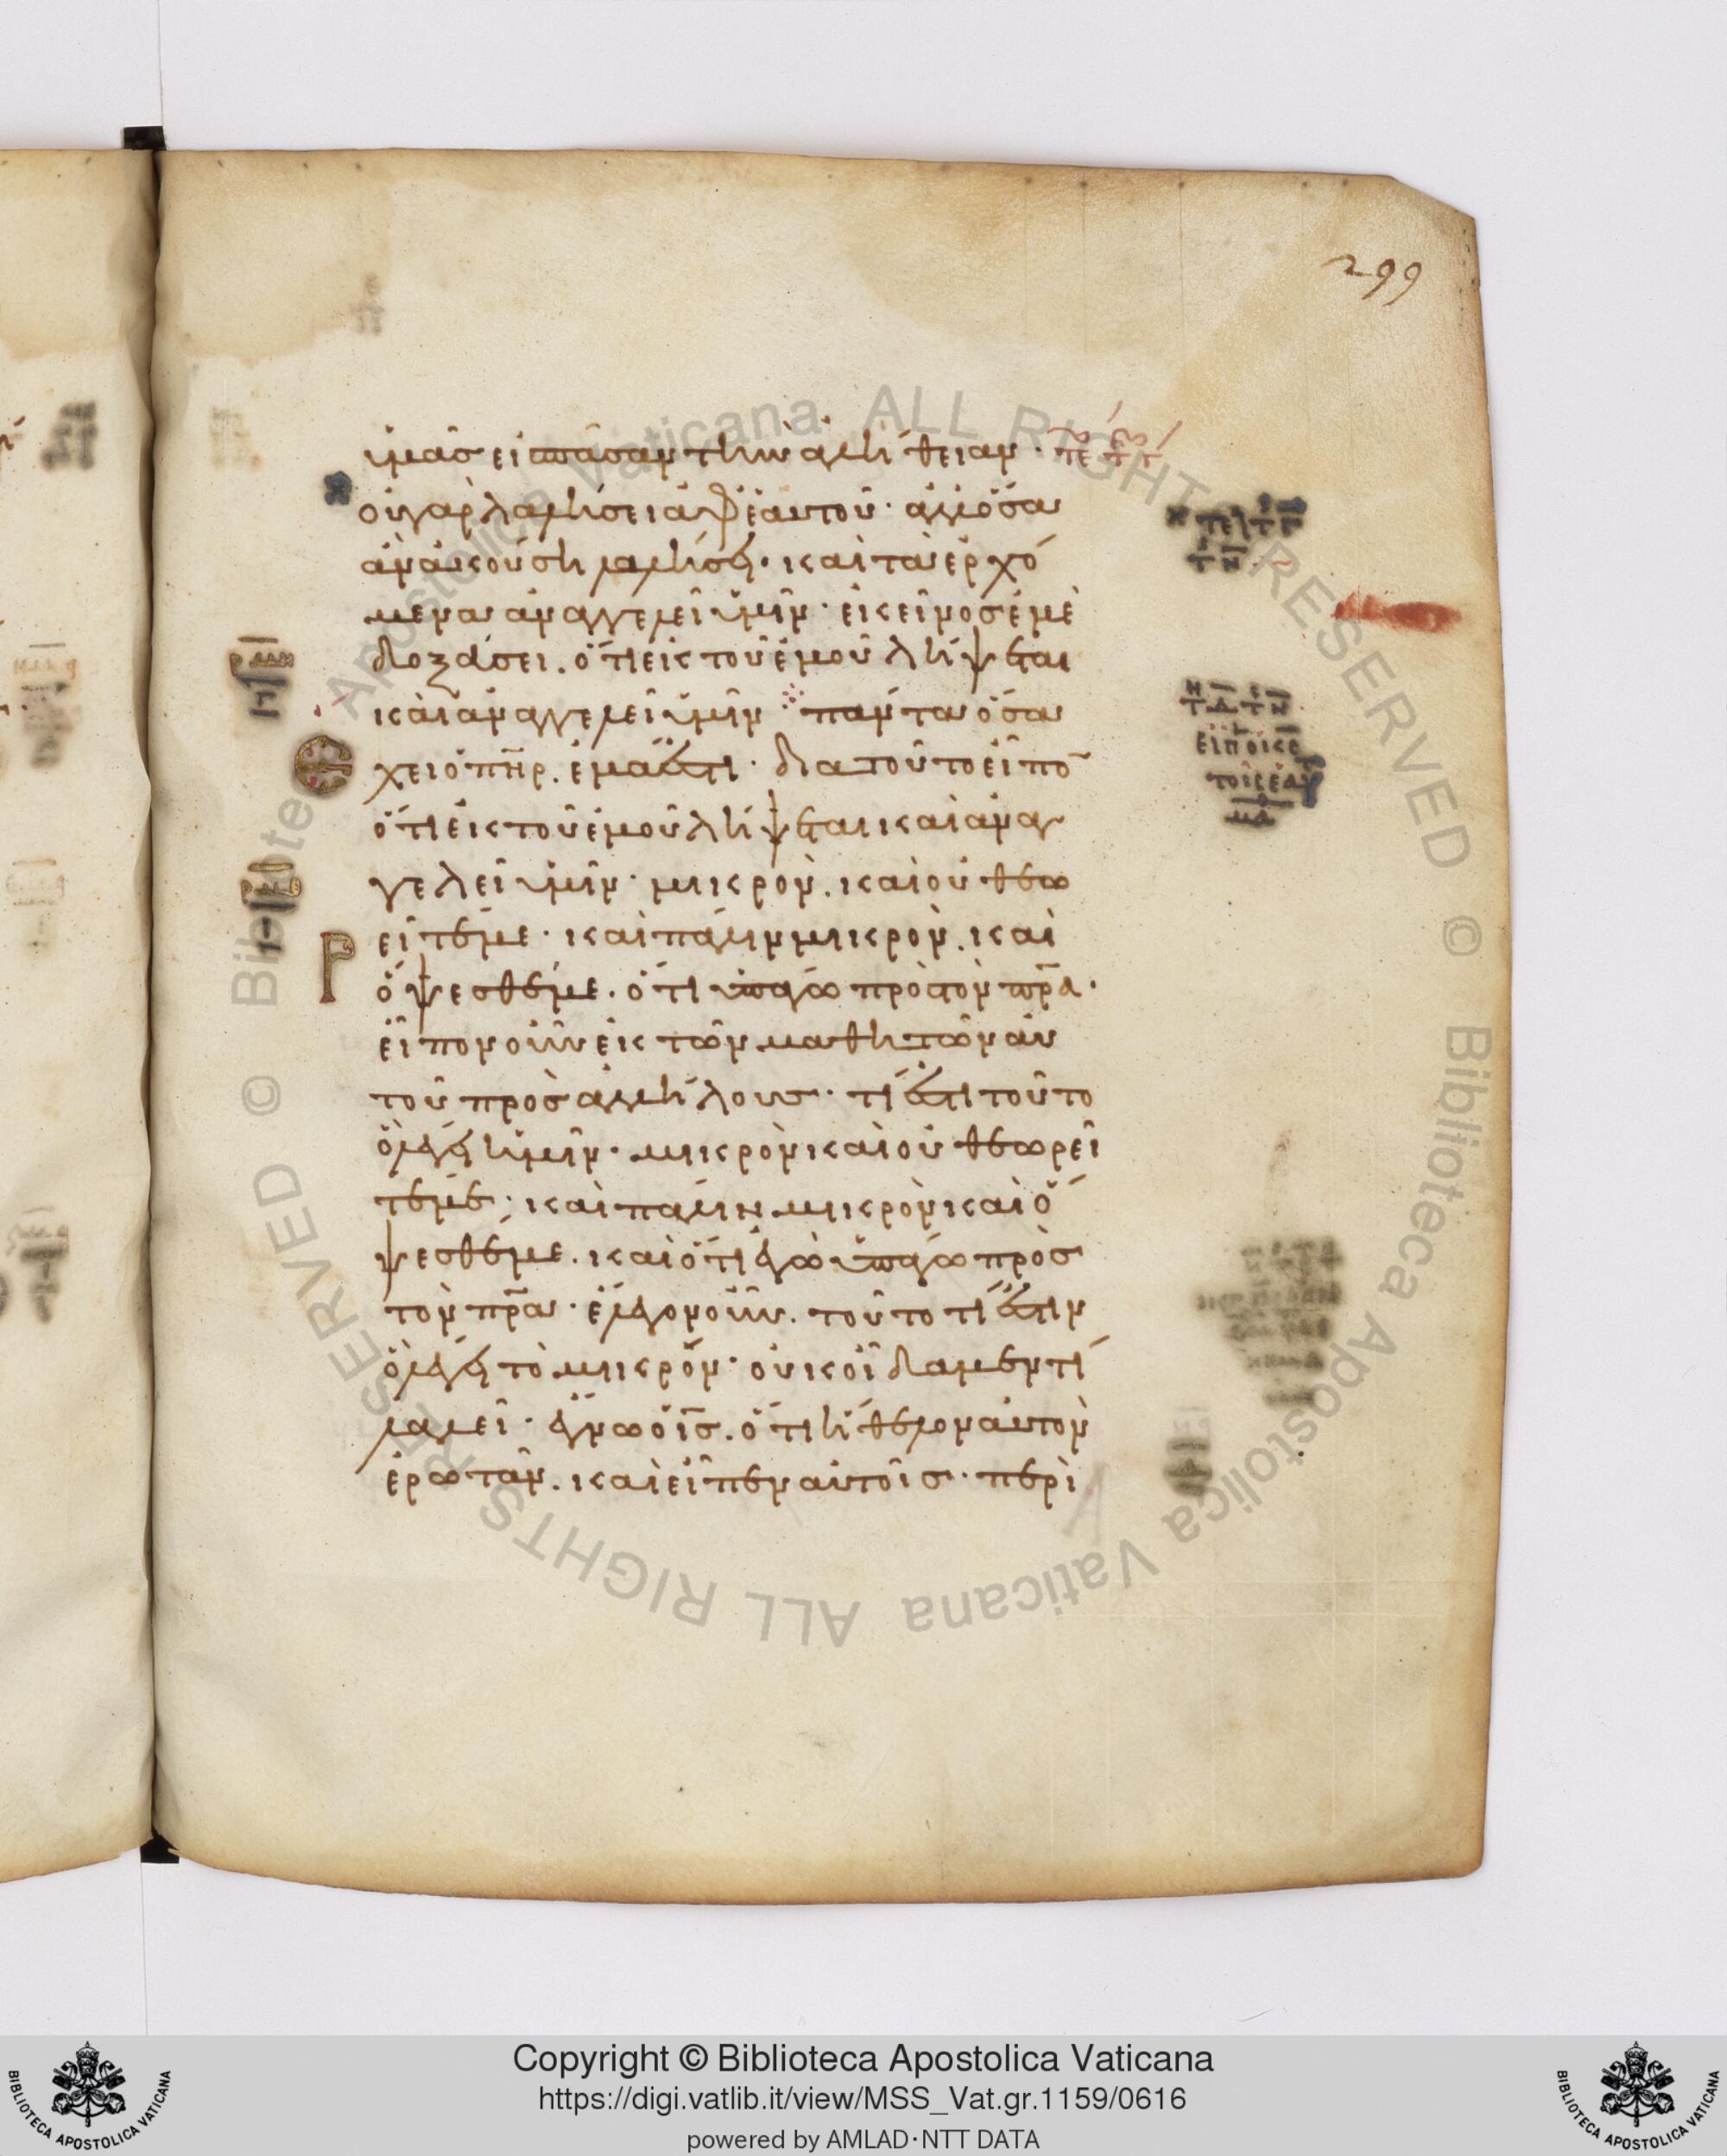 299
ὑμᾶσ εἰσ πᾶσαν τὴν ἀλήθειαν·
οὐ γαρ λαλήσει ἀφ' ἑαυτοῦ· ἀλλ' ὅσα
ἂν ἀκούση λαλήσει· καὶ τὰ ἐρχό
μενα ἀναγγελεῖ ὑμῖν· ἐκεῖνοσ ἐμὲ
δοξάσει. ὅτι ἐκ τοῦ ἐμοῦ λήψεται
καὶ ἀναγγελεῖ ὑμῖν πάντα ὅσα
ἔχει ὁ πηρ. ἐμά ἐστι· δια τοῦτο εἶπο
ὅτι ἐκ τοῦ ἐμοῦ λήψεται καὶ ἀναγ
γελεῖ ὑμῖν· μικρὸν. καὶ οὐ θεω
ρεῖτέ με· καὶ πάλιν μικρὸν. καὶ
ὄψεσθέ με. ὅτι ὑπάγω πρὸσ τὸν πρα·
εἶπον οὖν ἐκ τῶν μαθητῶν αὐ
τοῦ προσ ἀλλήλουσ· τί ἐστι τοῦτο
ὃ λέγει ἡμῖν· μικρὸν καὶ οὐ θεωρεῖ
τέ με· καὶ πάλιν μικρὸν καὶ ὄ
ψεσθέ με. καὶ ὅτι ἐγὼ ὑπάγω πρὸσ
τὸν πρα· ἔλεγον οὖν. τοῦτο τί ἐστιν
ὃ λέγει τὸ μικρόν· οὐκ οἴδαμεν τί
λαλεῖ· ἔγνω ὁ ισ. ὅτι ἤθελον αὐτὸν
ἐρωτᾶν. καὶ εἶπεν αὐτοῖσ· περὶ
Copyright © Biblioteca Apostolica Vaticana
https://digi.vatlib.it/view/MSS_Vat.gr.1159/0616
powered by AMLAD·NTT DATA
BIBLIOTECA APOSTOLICA VATICANA
BIBLIOTECA APOSTOLICA VATICANA
© Biblioteca Apostolica Vaticana ALL RIGHTS RESERVED
© Biblioteca Apostolica Vaticana ALL RIGHTS RESERVED